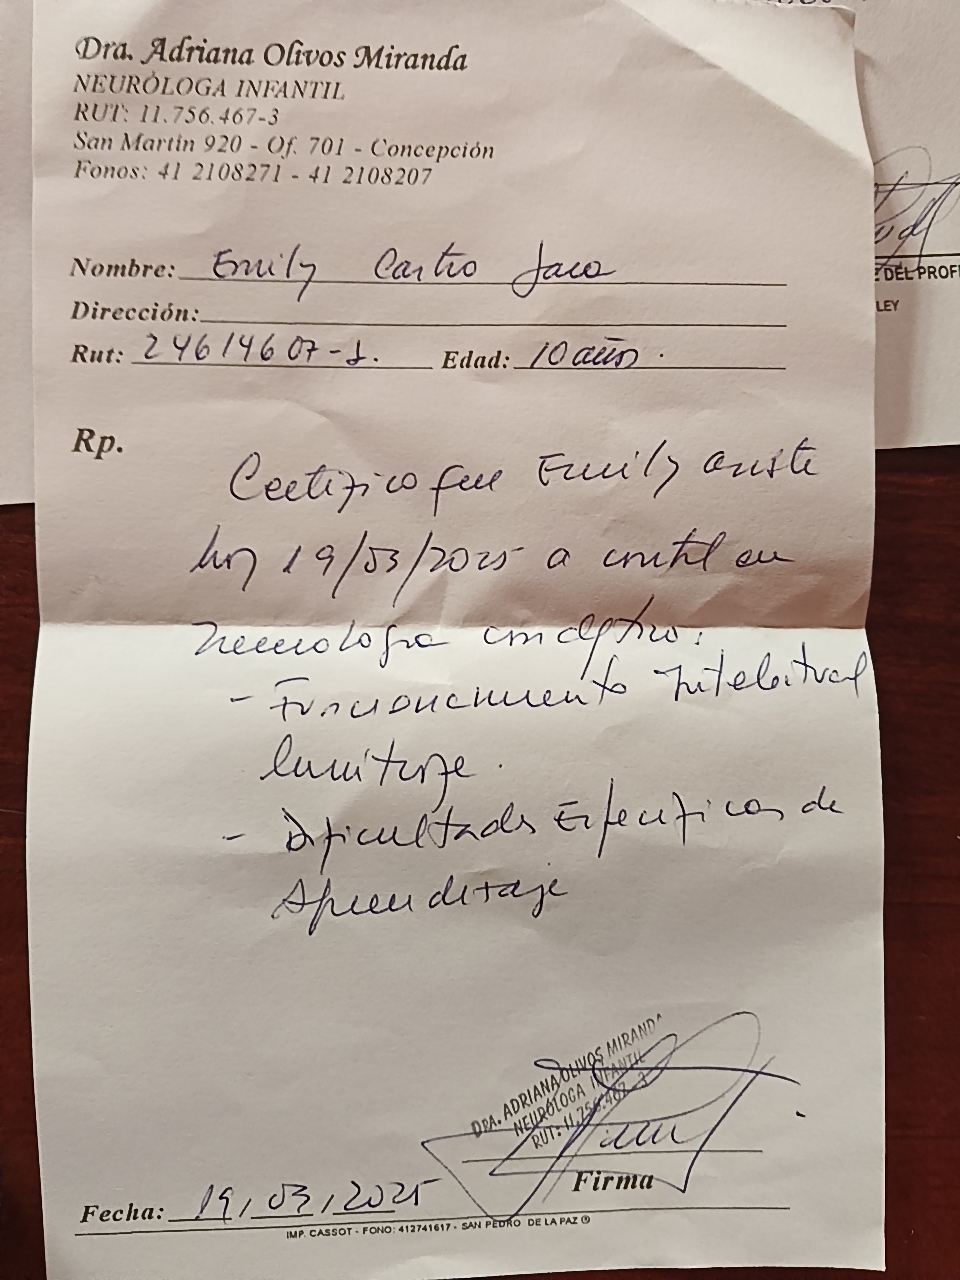 Dra. Adriana Olivos Miranda
NEURÓLOGA INFANTIL
RUT: 11.756.467-3
San Martín 920 - Of. 701 - Concepción
Fonos: 41 2108271 - 41 2108207
Nombre: Emily Castro Jara
Dirección:
Rut: 24614607-1. Edad: 10 años.
Rp.
Certifico que Emily asiste
hoy 19/03/2025 a control en
neurología con dgtico:
- Funcionamiento Intelectual
limítrofe.
- Dificultades Específicas de
Aprendizaje
DRA. ADRIANA OLIVOS MIRANDA
NEURÓLOGA INFANTIL
RUT: 11.756.467-3
Firma
Fecha: 19/03/2025
IMP. CASSOT - FONO: 412741617 - SAN PEDRO DE LA PAZ
DEL PROF
LEY